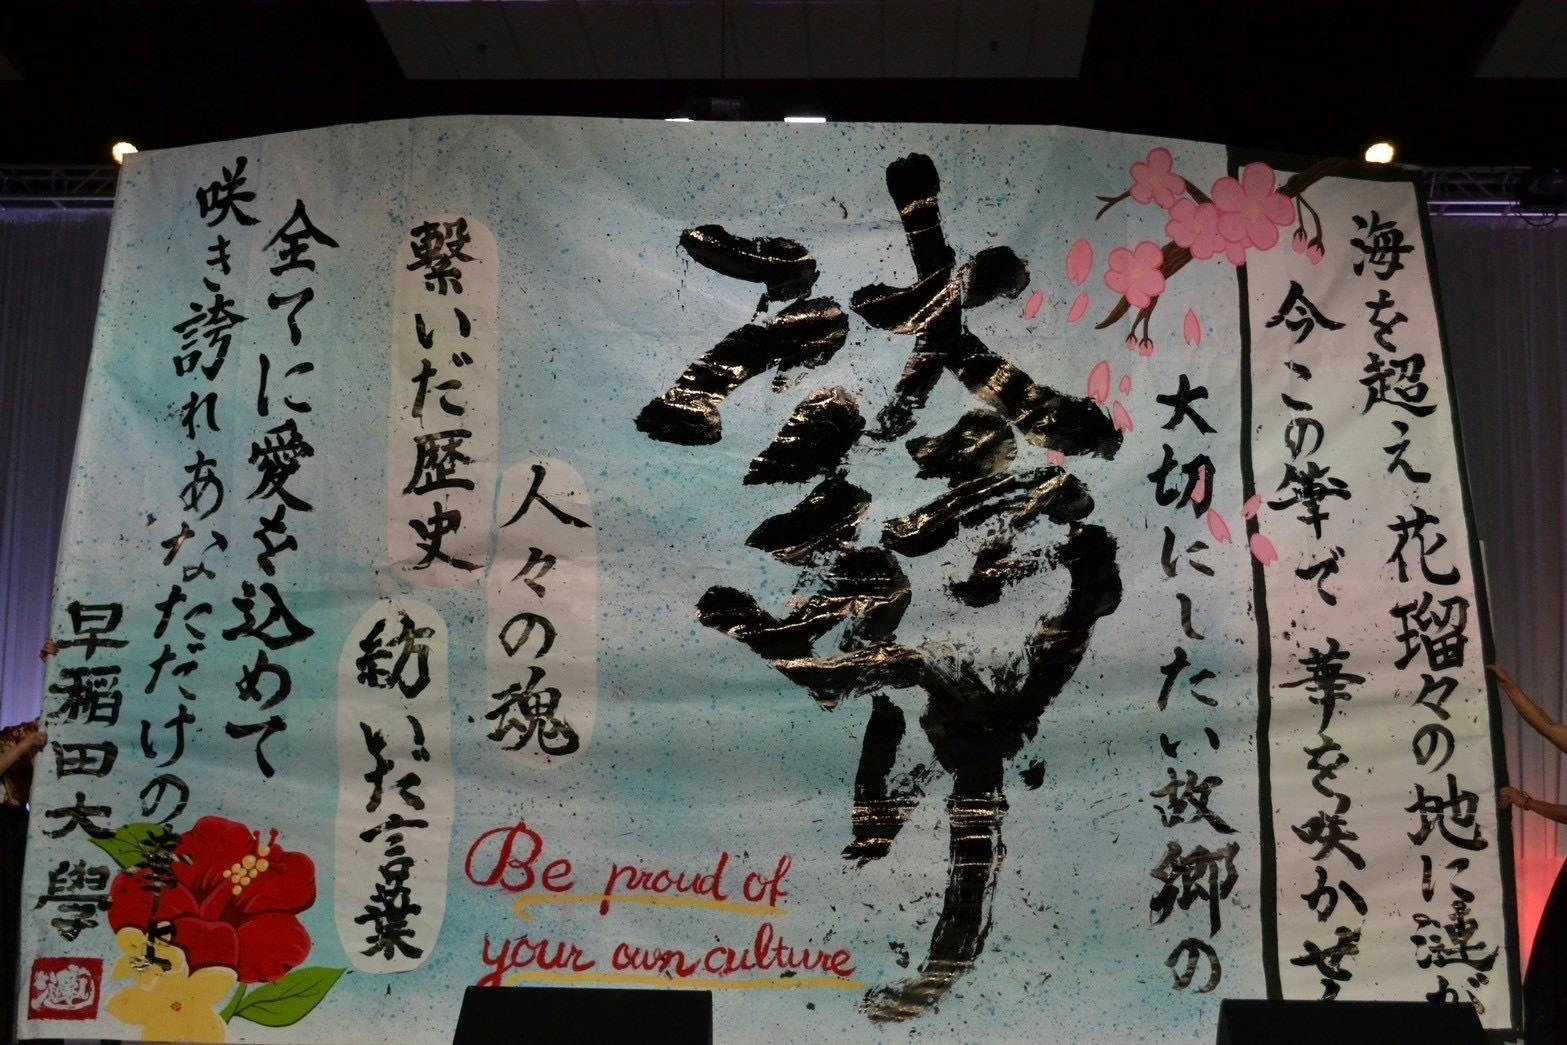 海を超え花瑠々の地に漣が
今この筆で華を咲かせ
大切にしたい故郷の
誇り
人々の魂
繋いだ歴史
紡いだ言葉
Be proud of
your own culture
全てに愛を込めて
咲き誇れあなただけの
早稲田大學
漣